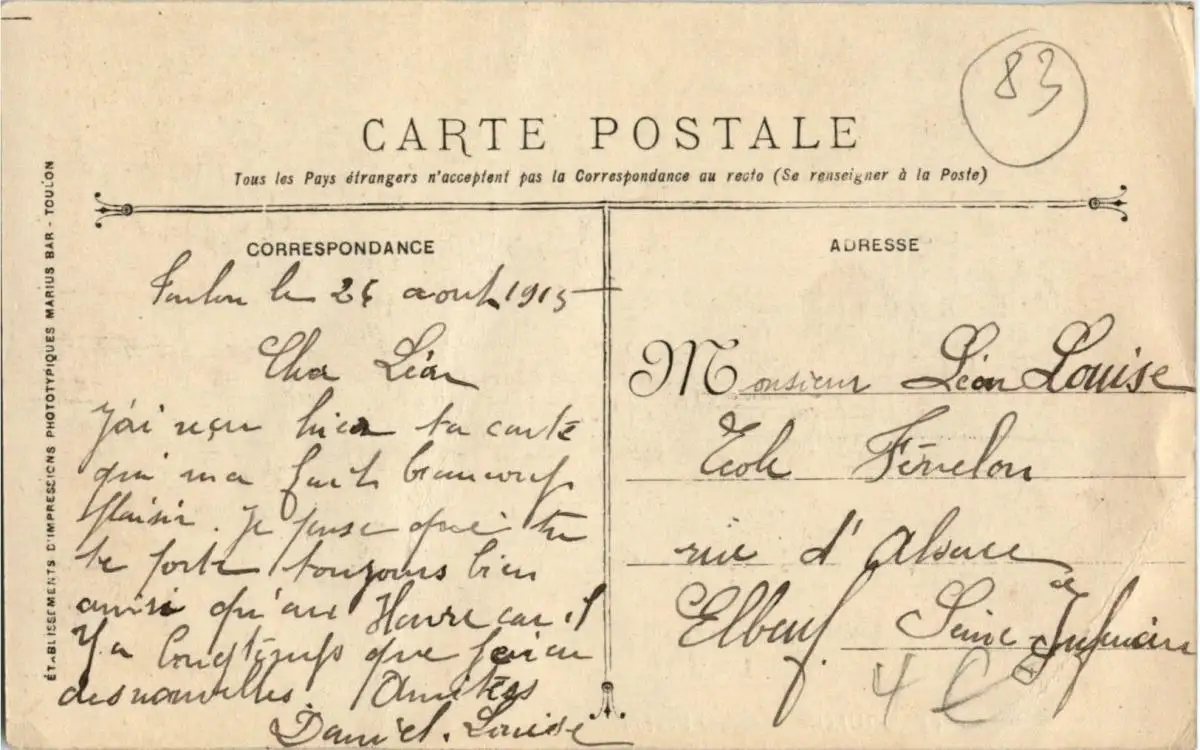 83
CARTE POSTALE
Tous les Pays étrangers n'acceptent pas la Correspondance au recto (Se renseigner à la Poste)
ÉTABLISSEMENTS D'IMPRESSIONS PHOTOTYPIQUES MARIUS BAR - TOULON
CORRESPONDANCE
Toulon le août 1915
Cher Léon
J'ai reçu hier ta carte
qui m'a fait beaucoup
plaisir. Je pense que tu
te porte toujours bien
ainsi qu'au Havre car il
Y a longtemps que j'ai eu
des nouvelles Amitiés
Daniel. Louise
ADRESSE
Monsieur Léon Louise
Ecole Fénelon
rue d'Alsace
Elbeuf Seine Inférieure
4 €